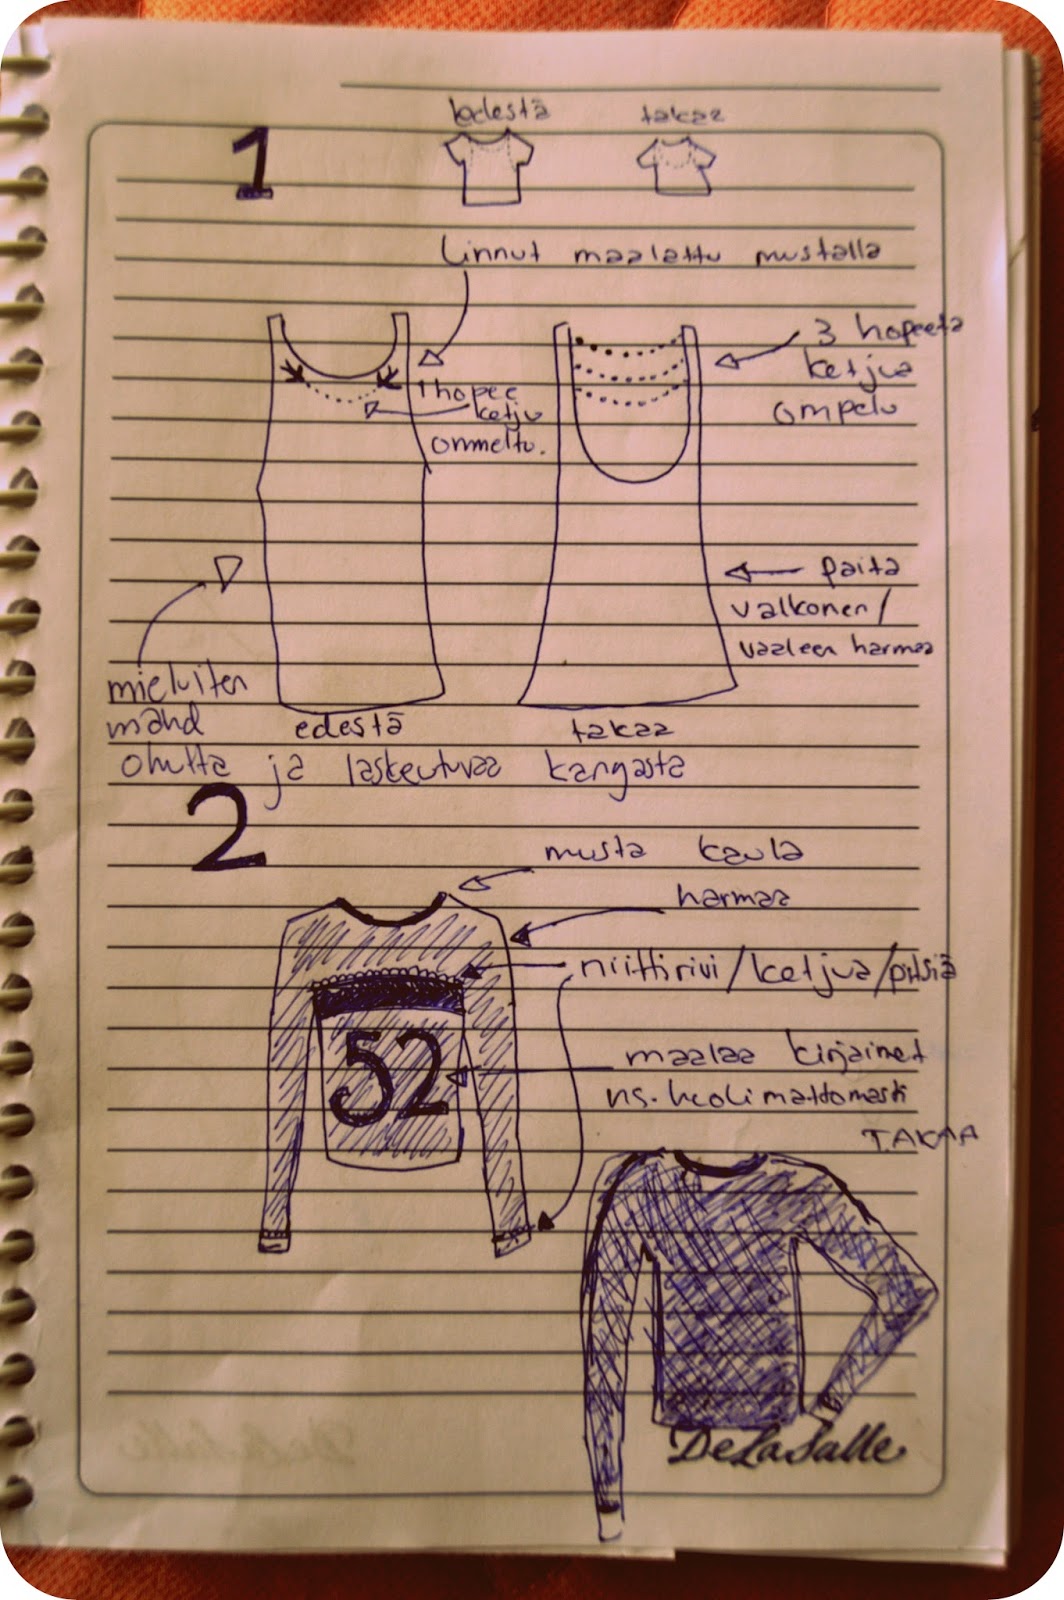 1
edestä
takaa
Linnut maalattu mustalla
3 hopeeta
ketjua
ompelu
1 hopee
ketju
ommeltu.
paita
valkonen/
vaaleen harmaa
mieluiten
mahd
edestä
takaa
ohutta ja laskeutuvaa kangasta
2
musta kaula
harmaa
niittirivi/ketjua/pitsiä
52
maalaa kirjaimet
ns. huolimattomasti
TAKAA
DeLaSalle